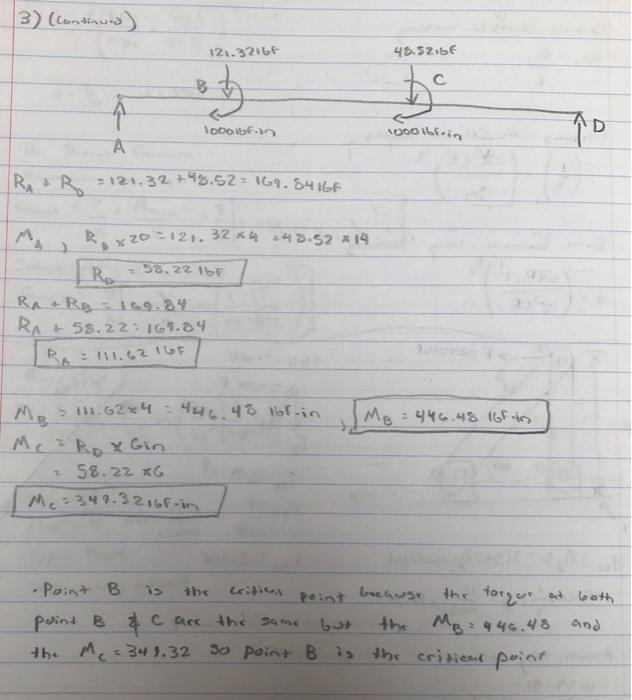 3) (Continued)
121.32 lbf 48.52 lbf
B C
1000 lbf-in 1000 lbf-in
A D
RA + RD = 121.32 + 48.52 = 169.84 lbf
MA , RD × 20 = 121.32 × 4 + 48.52 × 14
RD = 58.22 lbf
RA + RB = 169.84
RA + 58.22 = 169.84
RA = 111.62 lbf
MB = 111.62 × 4 = 446.48 lbf-in , MB = 446.48 lbf-in
MC = RD × 6in
= 58.22 × 6
MC = 349.32 lbf-in
• Point B is the critical point because the torque at both
point B & C are the same but the MB = 446.48 and
the MC = 349.32 so point B is the critical point